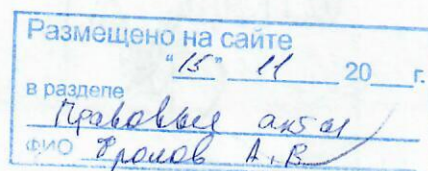 Размещено на сайте
"15" 11 20__г.
в разделе
Правовые акты
ФИО Фролов А.В